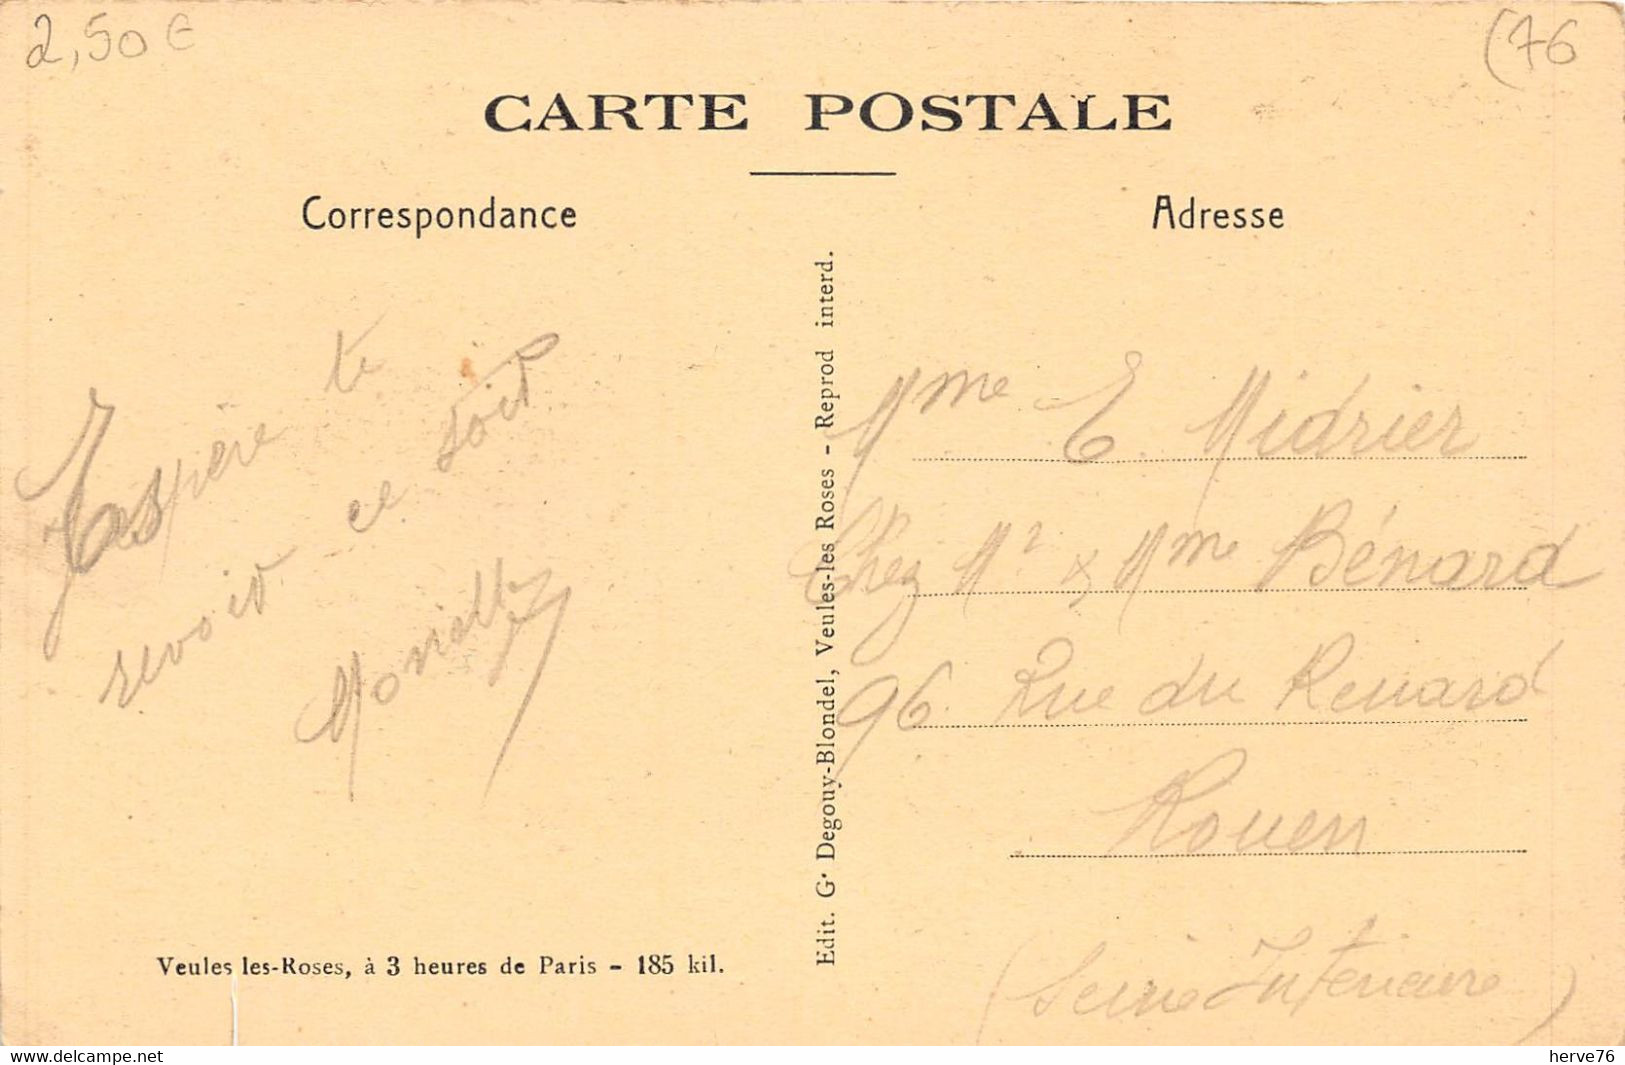 2,50 €
(76
CARTE POSTALE
Correspondance
Adresse
J'espère te
revoir ce soir
Edit. Gr Degouy-Blondel, Veules-les Roses - Reprod interd.
Mme E. Midrier
Chez Mr & Mme Bénard
96 Rue du Renard
Rouen
(Seine Inférieure)
Veules les-Roses, à 3 heures de Paris - 185 kil.
www.delcampe.net
herve76